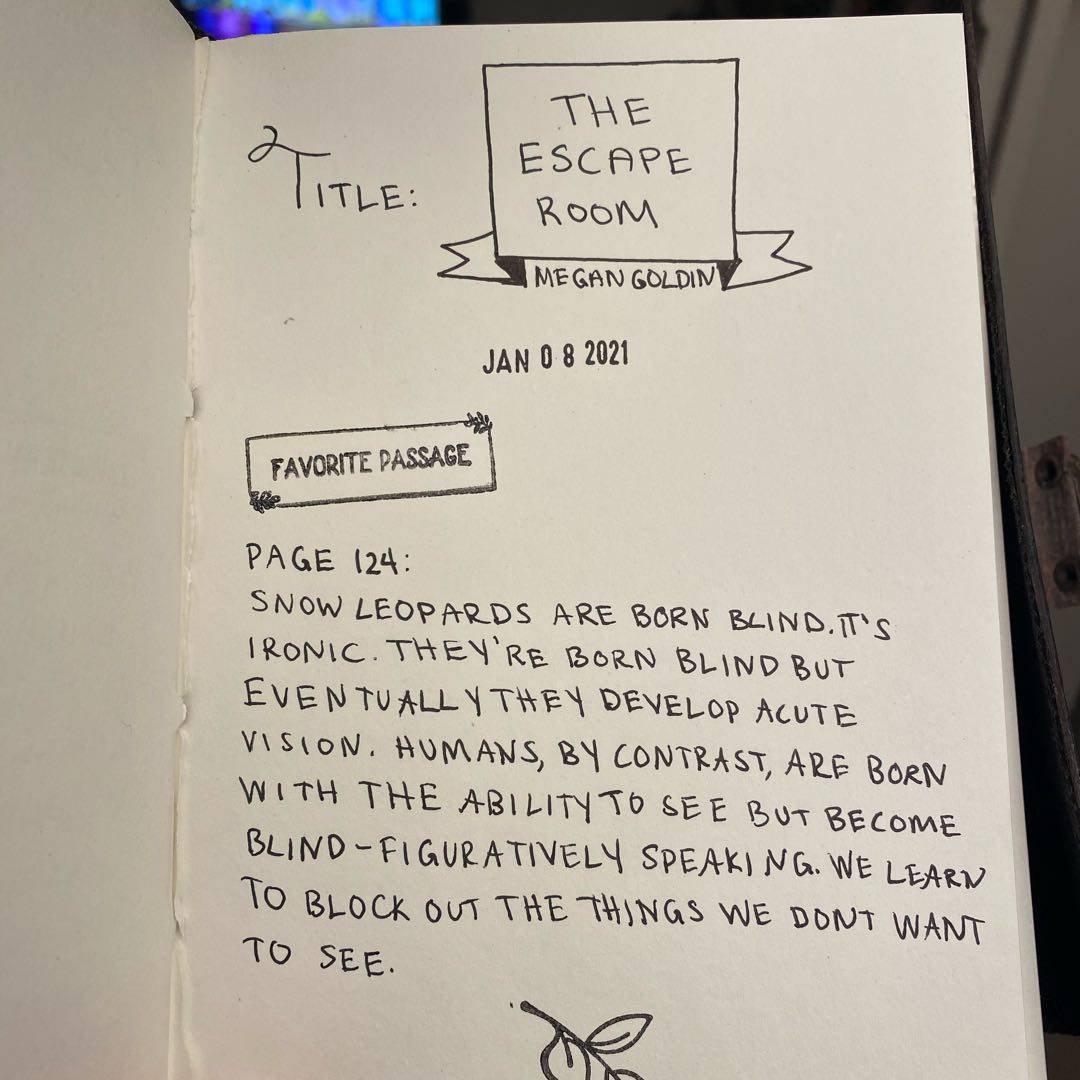 TITLE:
THE
ESCAPE
ROOM
MEGAN GOLDIN
JAN 08 2021
FAVORITE PASSAGE
PAGE 124:
SNOW LEOPARDS ARE BORN BLIND. IT'S
IRONIC. THEY'RE BORN BLIND BUT
EVENTUALLY THEY DEVELOP ACUTE
VISION. HUMANS, BY CONTRAST, ARE BORN
WITH THE ABILITY TO SEE BUT BECOME
BLIND-FIGURATIVELY SPEAKING. WE LEARN
TO BLOCK OUT THE THINGS WE DONT WANT
TO SEE.